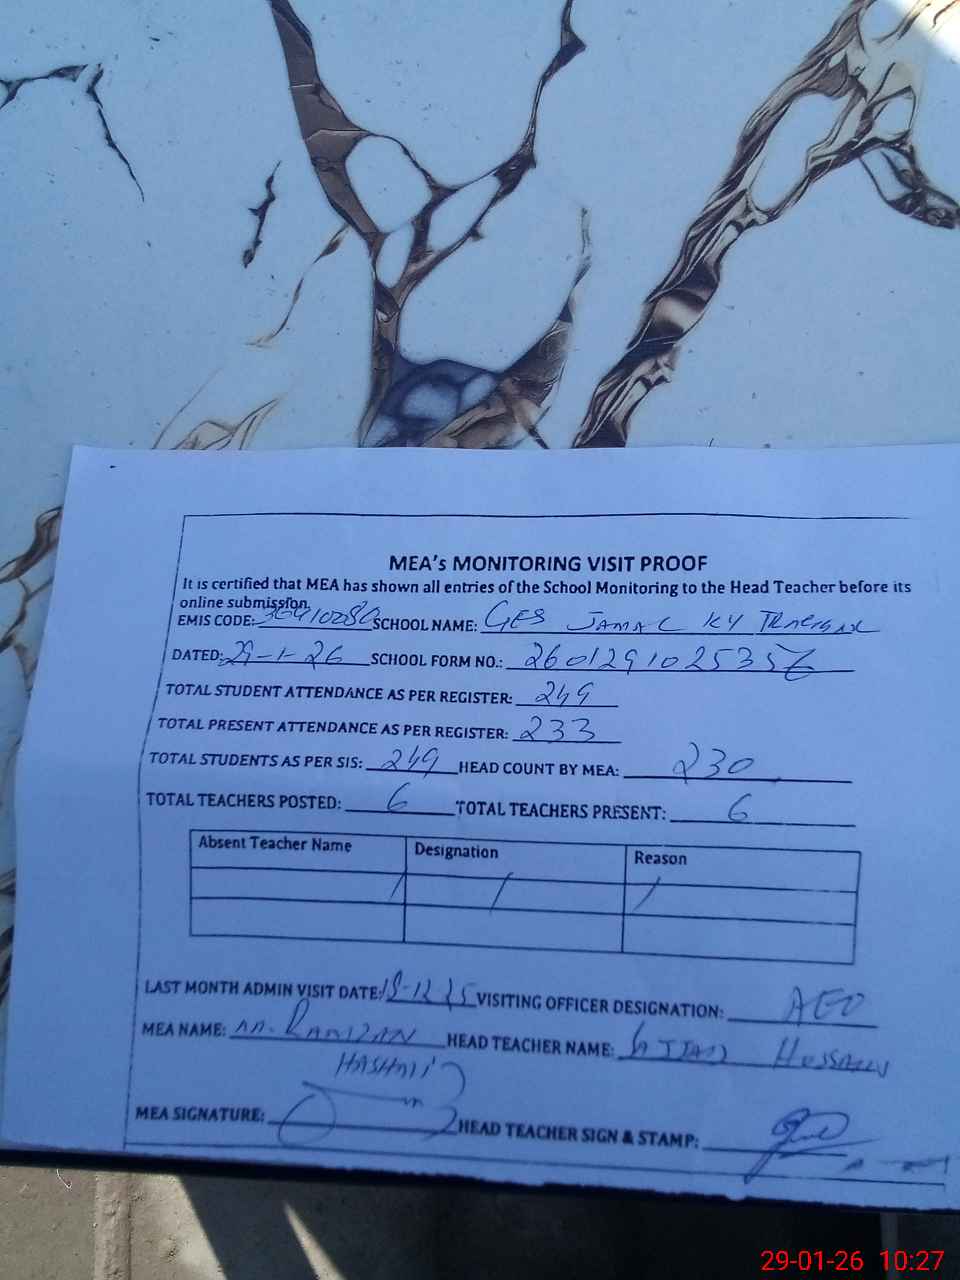 MEA's MONITORING VISIT PROOF
It is certified that MEA has shown all entries of the School Monitoring to the Head Teacher before its
online submission.
EMIS CODE: SCHOOL NAME: GES JAMAL
DATED: 29-1-26 SCHOOL FORM NO.:
TOTAL STUDENT ATTENDANCE AS PER REGISTER: 249
TOTAL PRESENT ATTENDANCE AS PER REGISTER: 233
TOTAL STUDENTS AS PER SIS: 249 HEAD COUNT BY MEA: 230
TOTAL TEACHERS POSTED: 6 TOTAL TEACHERS PRESENT: 6
Absent Teacher Name Designation Reason
LAST MONTH ADMIN VISIT DATE: VISITING OFFICER DESIGNATION: AEO
MEA NAME: M. RAMZAN HEAD TEACHER NAME: HUSSAIN
HASHMI
MEA SIGNATURE: HEAD TEACHER SIGN & STAMP:
29-01-26 10:27